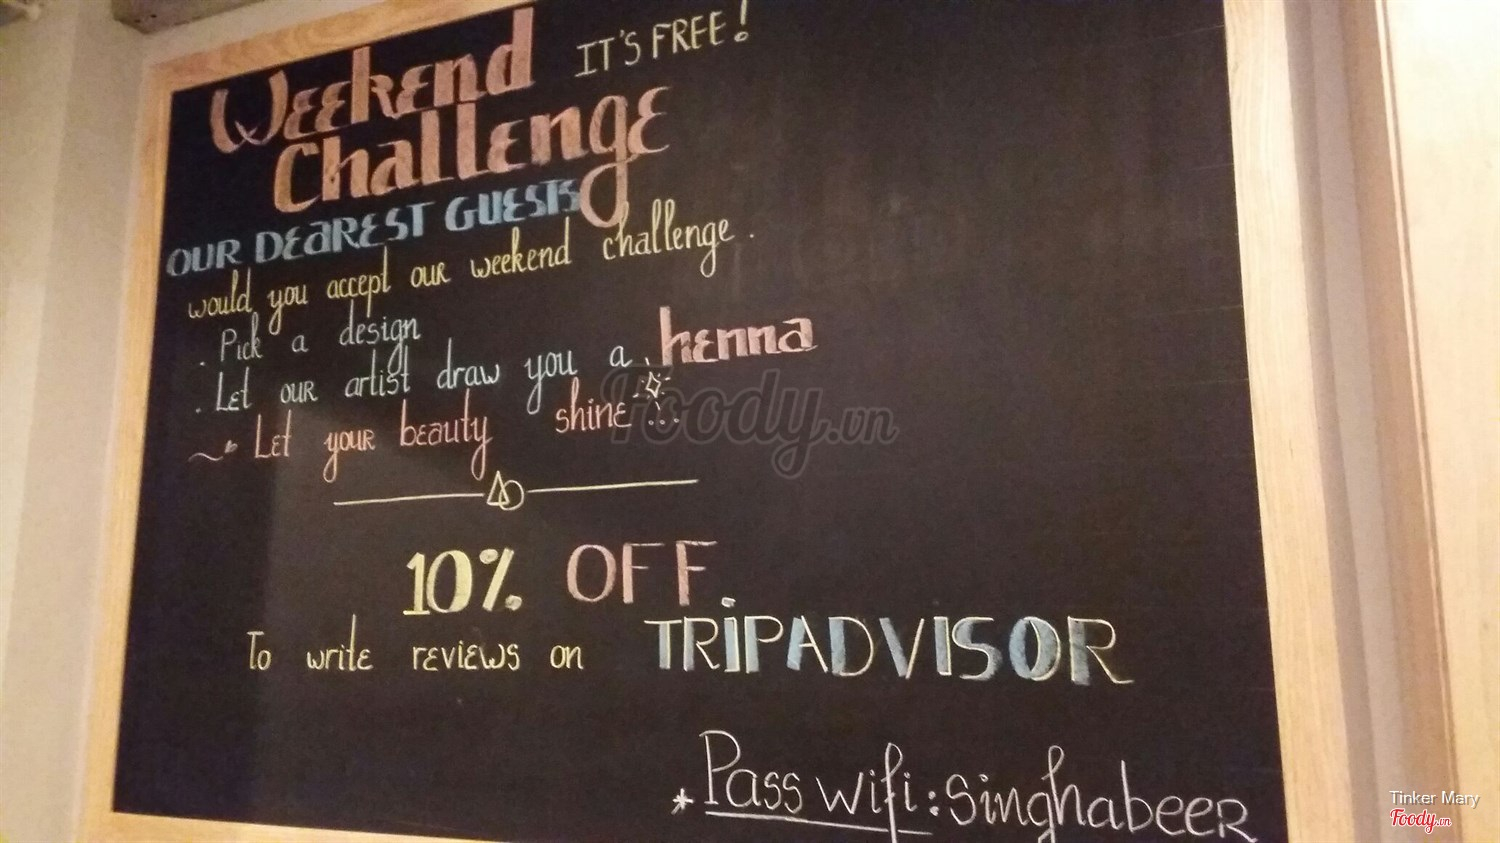 Weekend IT'S FREE!
Challenge
OUR DEAREST GUESTS
would you accept our weekend challenge.
. Pick a design
. Let our artist draw you a henna
Let your beauty shine...
10% OFF
To write reviews on TRIPADVISOR
* Pass wifi: singhabeer
Foody.vn
Tinker Mary
Foody.vn